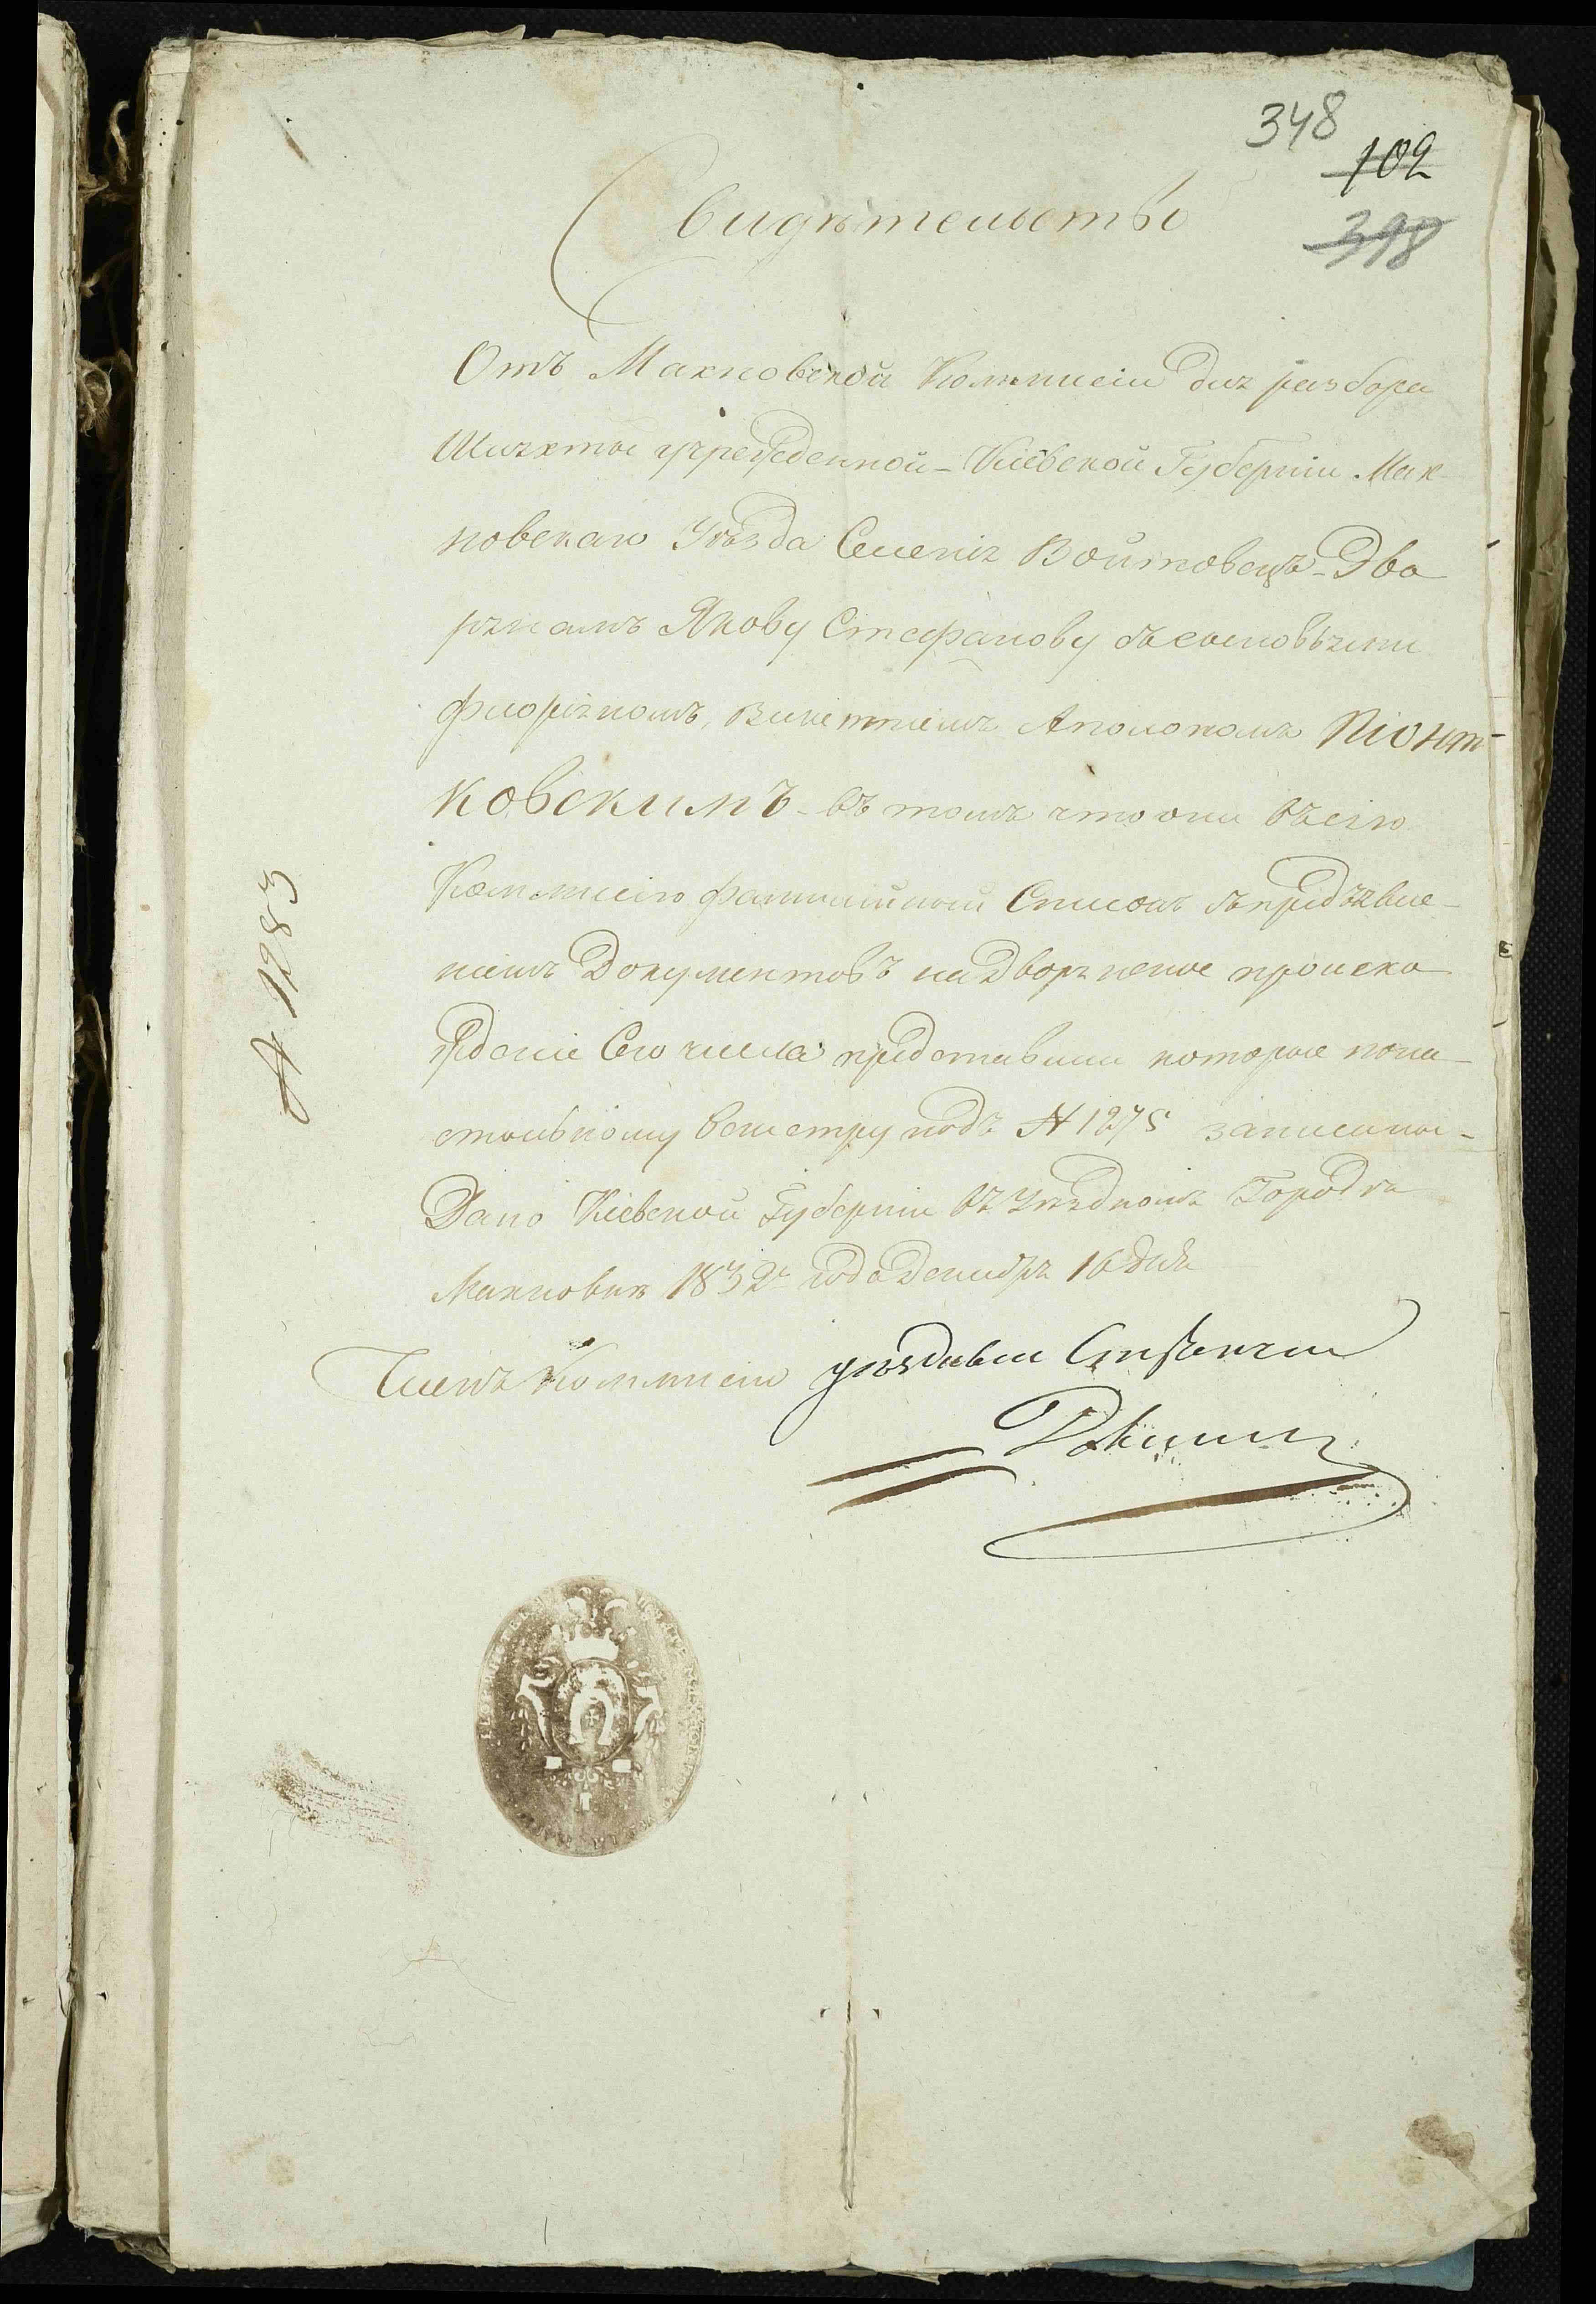 348
102
398
Свидѣтельство
Отъ Махновской Коммисіи для разбора
Шляхты учрежденной – Кіевской Губерніи Мах-
новскаго Уѣзда Селенія Войтовецъ – Дво
рянамъ Якову Стефанову съ сыновьями
Флоріяномъ, Викентіемъ Аполономъ Піонт-
ковскимъ – въ томъ что они въ сію
Коммисію фамилійный Списокъ съ придъявле-
ніемъ Документовъ на Дворянское происхо
жденіе Сего числа представили которые пона
стольному Регистру подъ № 1275 записаны –
Дано Кіевской Губерніи въ Уѣздномъ Городѣ
Махновкѣ 1832 года Декабря 16 дня
Членъ Коммисіи уѣздный Стряпчій
№ 1283